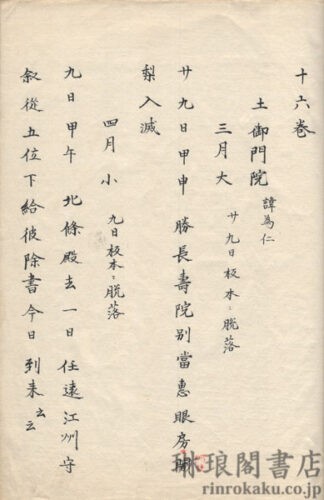 十六巻
土御門院 諱為仁
三月大 廿九日板本ニ脱落
廿九日甲申 勝長壽院別當惠眼房阿
梨入滅
四月小 九日板本ニ脱落
九日甲午 北條殿去一日任遠江州守
叙從五位下給彼除書今日到来云云
琳琅閣書店
rinrokaku.co.jp